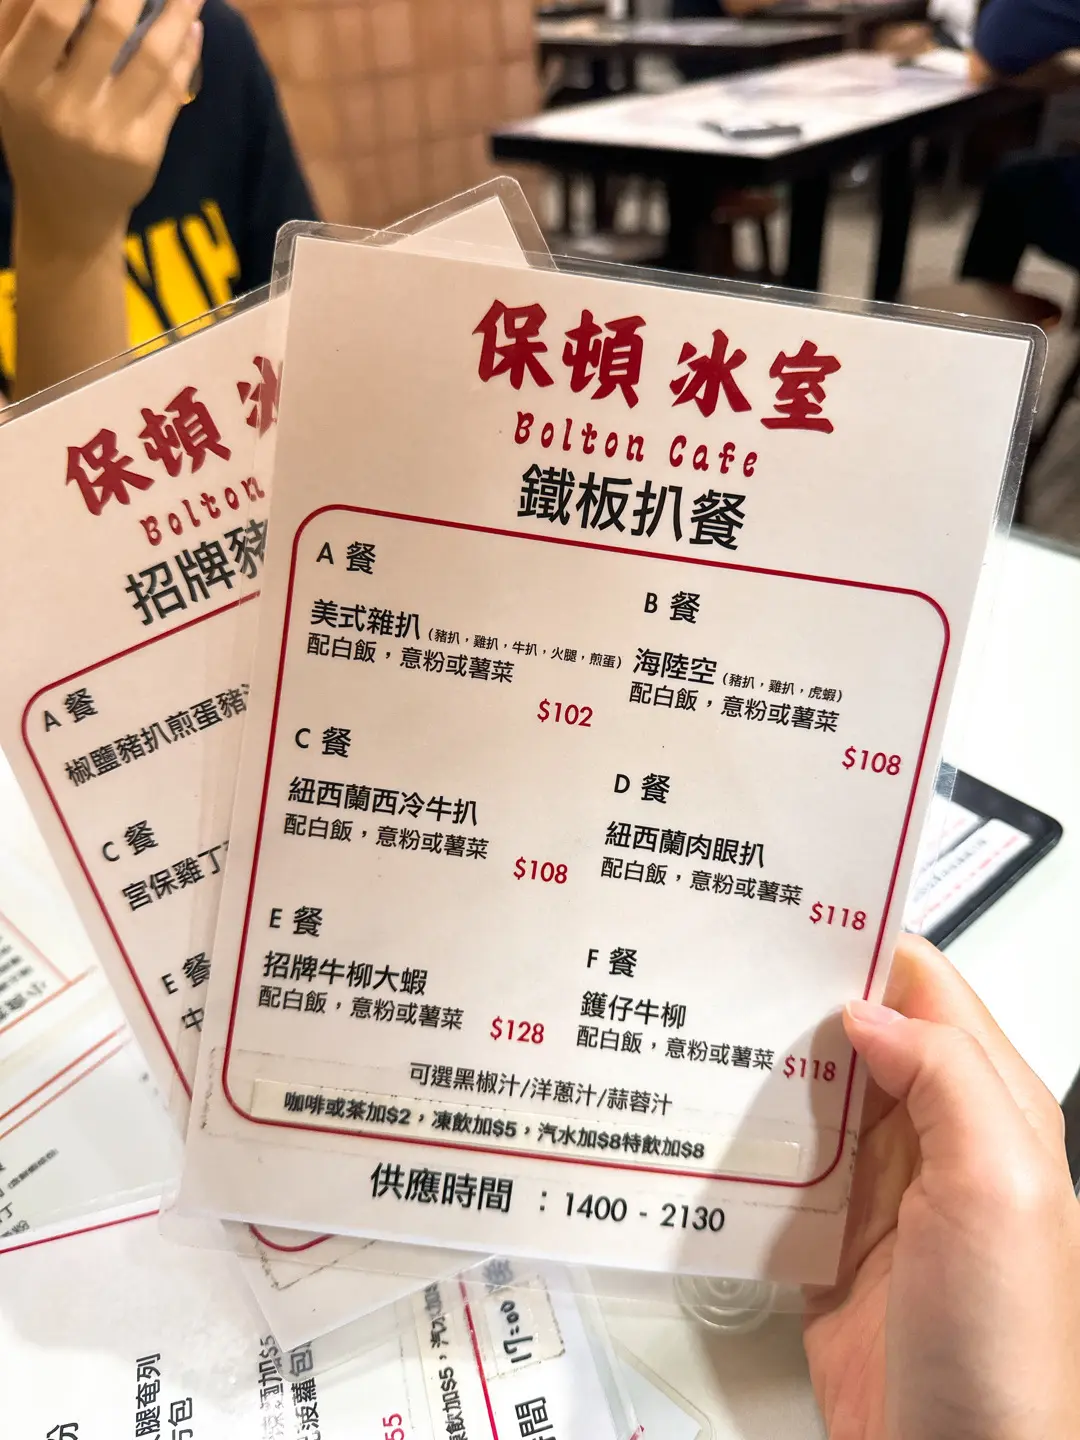 保頓冰室
Bolton Cafe
鐵板扒餐
A 餐
美式雜扒 (豬扒，雞扒，牛扒，火腿，煎蛋)
配白飯，意粉或薯菜
$102
B 餐
海陸空 (豬扒，雞扒，虎蝦)
配白飯，意粉或薯菜
$108
C 餐
紐西蘭西冷牛扒
配白飯，意粉或薯菜
$108
D 餐
紐西蘭肉眼扒
配白飯，意粉或薯菜
$118
E 餐
招牌牛柳大蝦
配白飯，意粉或薯菜
$128
F 餐
鑊仔牛柳
配白飯，意粉或薯菜
$118
可選黑椒汁/洋蔥汁/蒜蓉汁
咖啡或茶加$2，凍飲加$5，汽水加$8特飲加$8
供應時間 ：1400 - 2130
保頓冰
Bolton
招牌豬
A 餐
椒鹽豬扒煎蛋豬
C 餐
宮保雞丁
E 餐
中
腿奄列
包
加$5
菠蘿包
55
飲加$5，汽水加
17:00
間